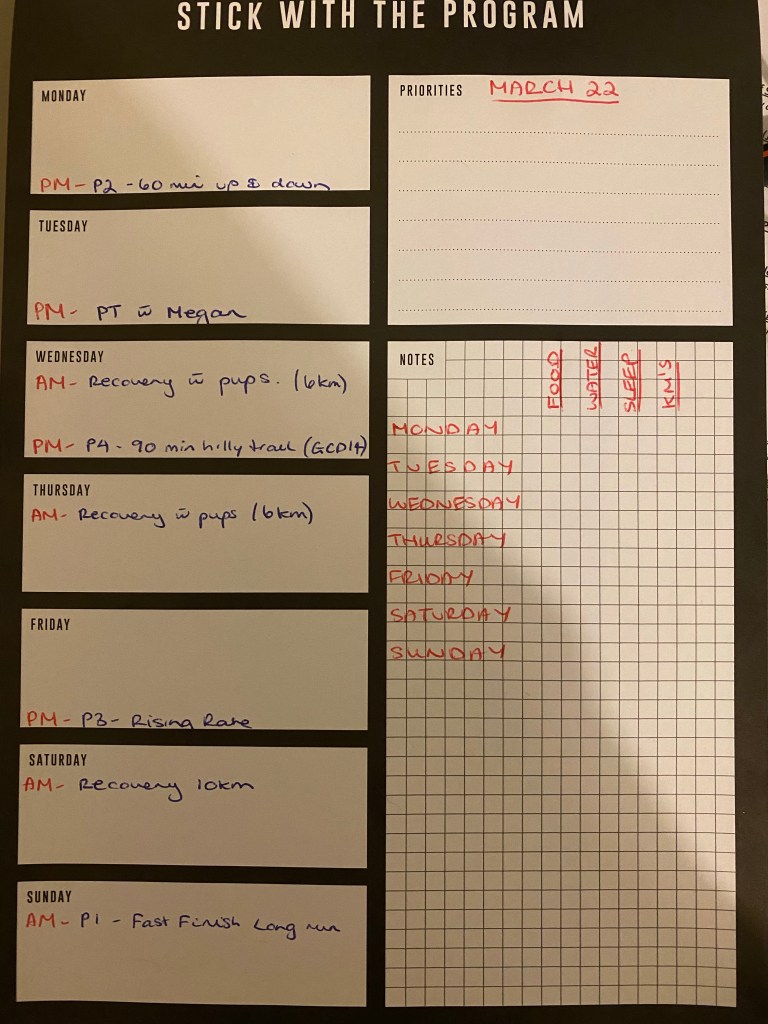 STICK WITH THE PROGRAM
MONDAY
PM- P2 -60 min up & down
TUESDAY
PM- PT w̄ Megan
WEDNESDAY
AM- Recovery w̄ pups. (6km)
PM- P4 - 90 min hilly trail (GCD14)
THURSDAY
AM- Recovery w̄ pups (6km)
FRIDAY
PM- P3- Rising Rate
SATURDAY
AM- Recovery 10km
SUNDAY
AM- P1 - Fast Finish Long run
PRIORITIES MARCH 22
NOTES
FOOD
WATER
SLEEP
KM'S
MONDAY
TUESDAY
WEDNESDAY
THURSDAY
FRIDAY
SATURDAY
SUNDAY